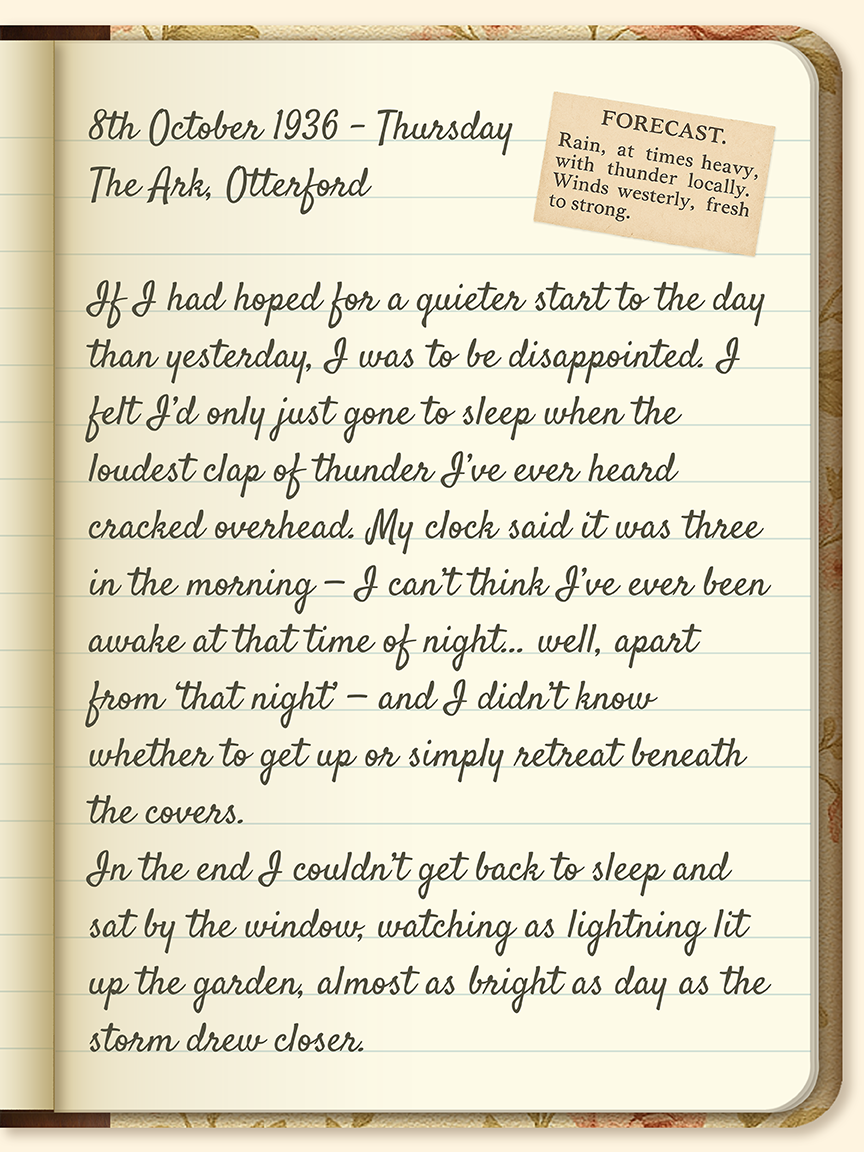 8th October 1936 – Thursday
The Ark, Otterford
FORECAST.
Rain, at times heavy,
with thunder locally.
Winds westerly, fresh
to strong.
If I had hoped for a quieter start to the day
than yesterday, I was to be disappointed. I
felt I’d only just gone to sleep when the
loudest clap of thunder I’ve ever heard
cracked overhead. My clock said it was three
in the morning – I can’t think I’ve ever been
awake at that time of night... well, apart
from ‘that night’ – and I didn’t know
whether to get up or simply retreat beneath
the covers.
In the end I couldn’t get back to sleep and
sat by the window, watching as lightning lit
up the garden, almost as bright as day as the
storm drew closer.